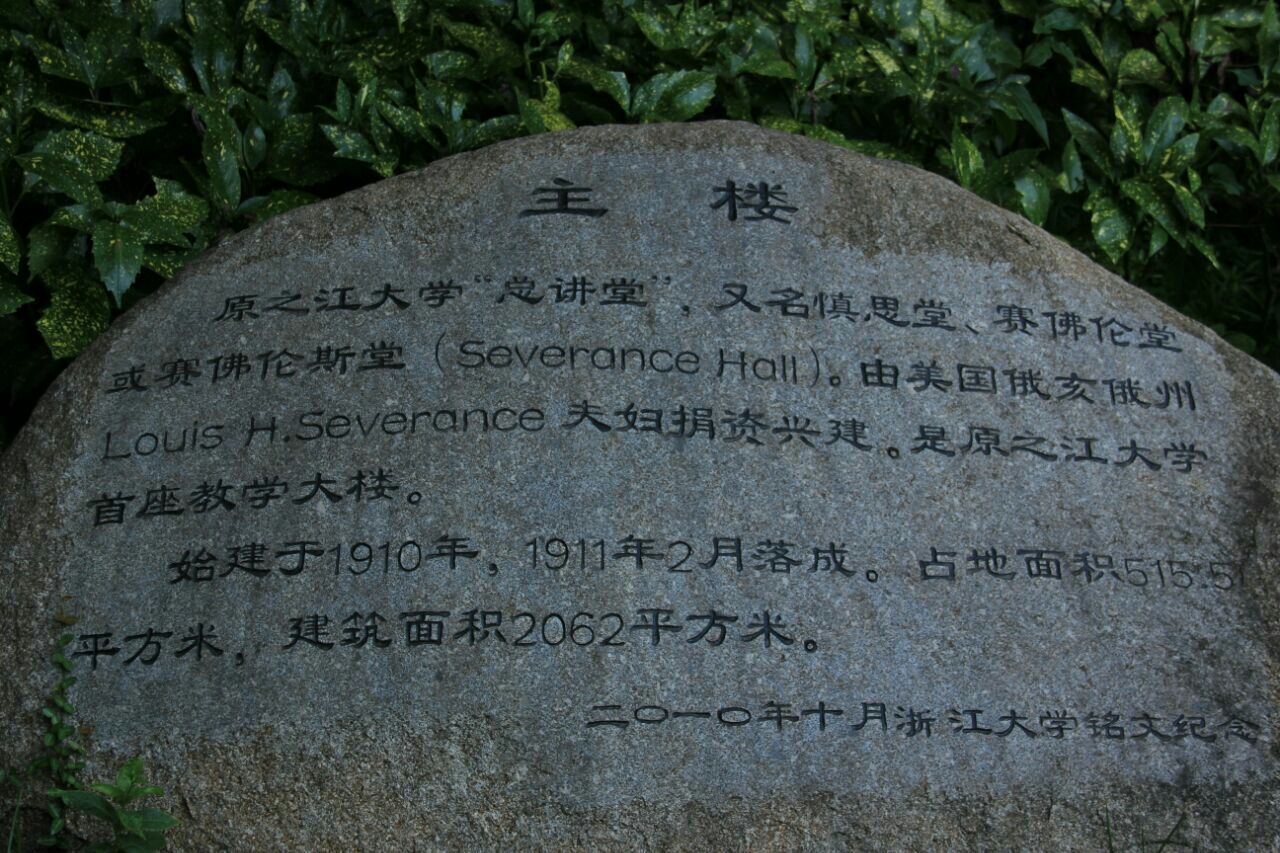 主 楼
原之江大学“总讲堂”，又名慎思堂、赛佛伦堂
或赛佛伦斯堂（Severance Hall）。由美国俄亥俄州
Louis H.Severance 夫妇捐资兴建。是原之江大学
首座教学大楼。
始建于1910年，1911年2月落成。占地面积515.5
平方米，建筑面积2062平方米。
二〇一〇年十月浙江大学铭文纪念